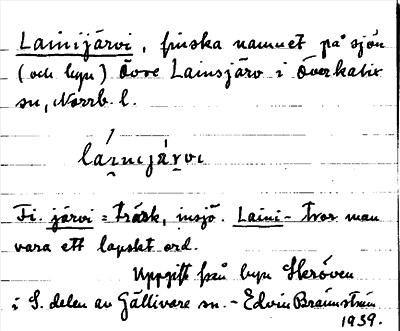 Lainijärvi, finska namnet på sjön
(och byn) Övre Lainsjärv i Överkalix
sn, Norrb. l.
láinijä́rvi
Fi. järvi = träsk, insjö. Laini- tror man
vara ett lapskt ord.
Uppgift från byn Skröven
i S. delen av Gällivare sn. - Edvin Brännström
1939.